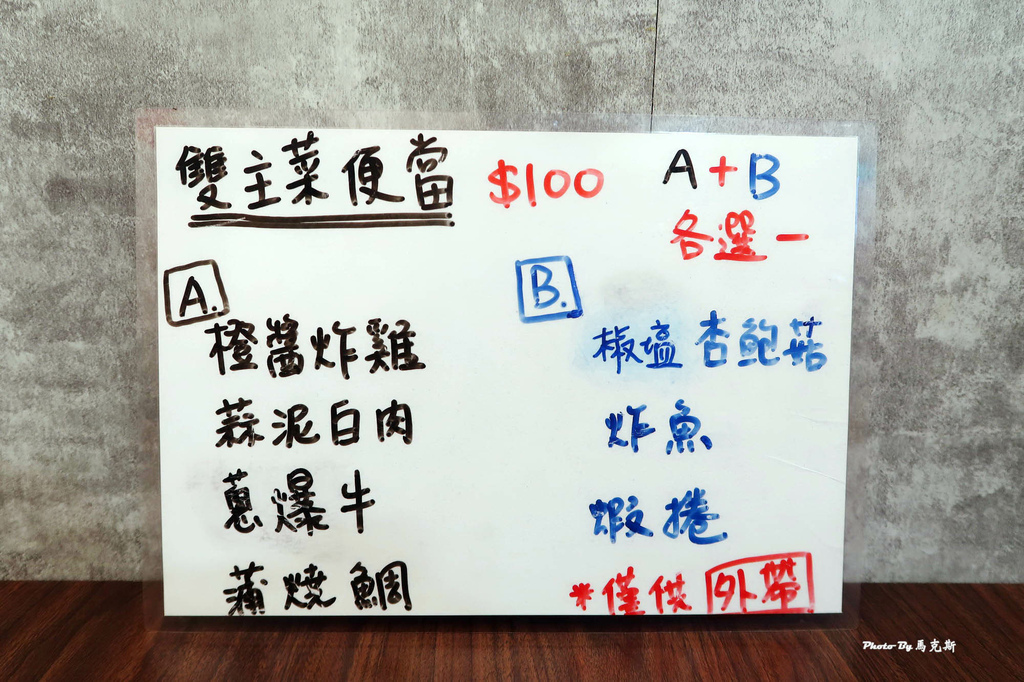 雙主菜便當 $100 A+B
各選一
A.
橙醬炸雞
蒜泥白肉
蔥爆牛
蒲燒鯛
B.
椒塩杏鮑菇
炸魚
蝦捲
*僅供外帶
Photo By 馬克斯